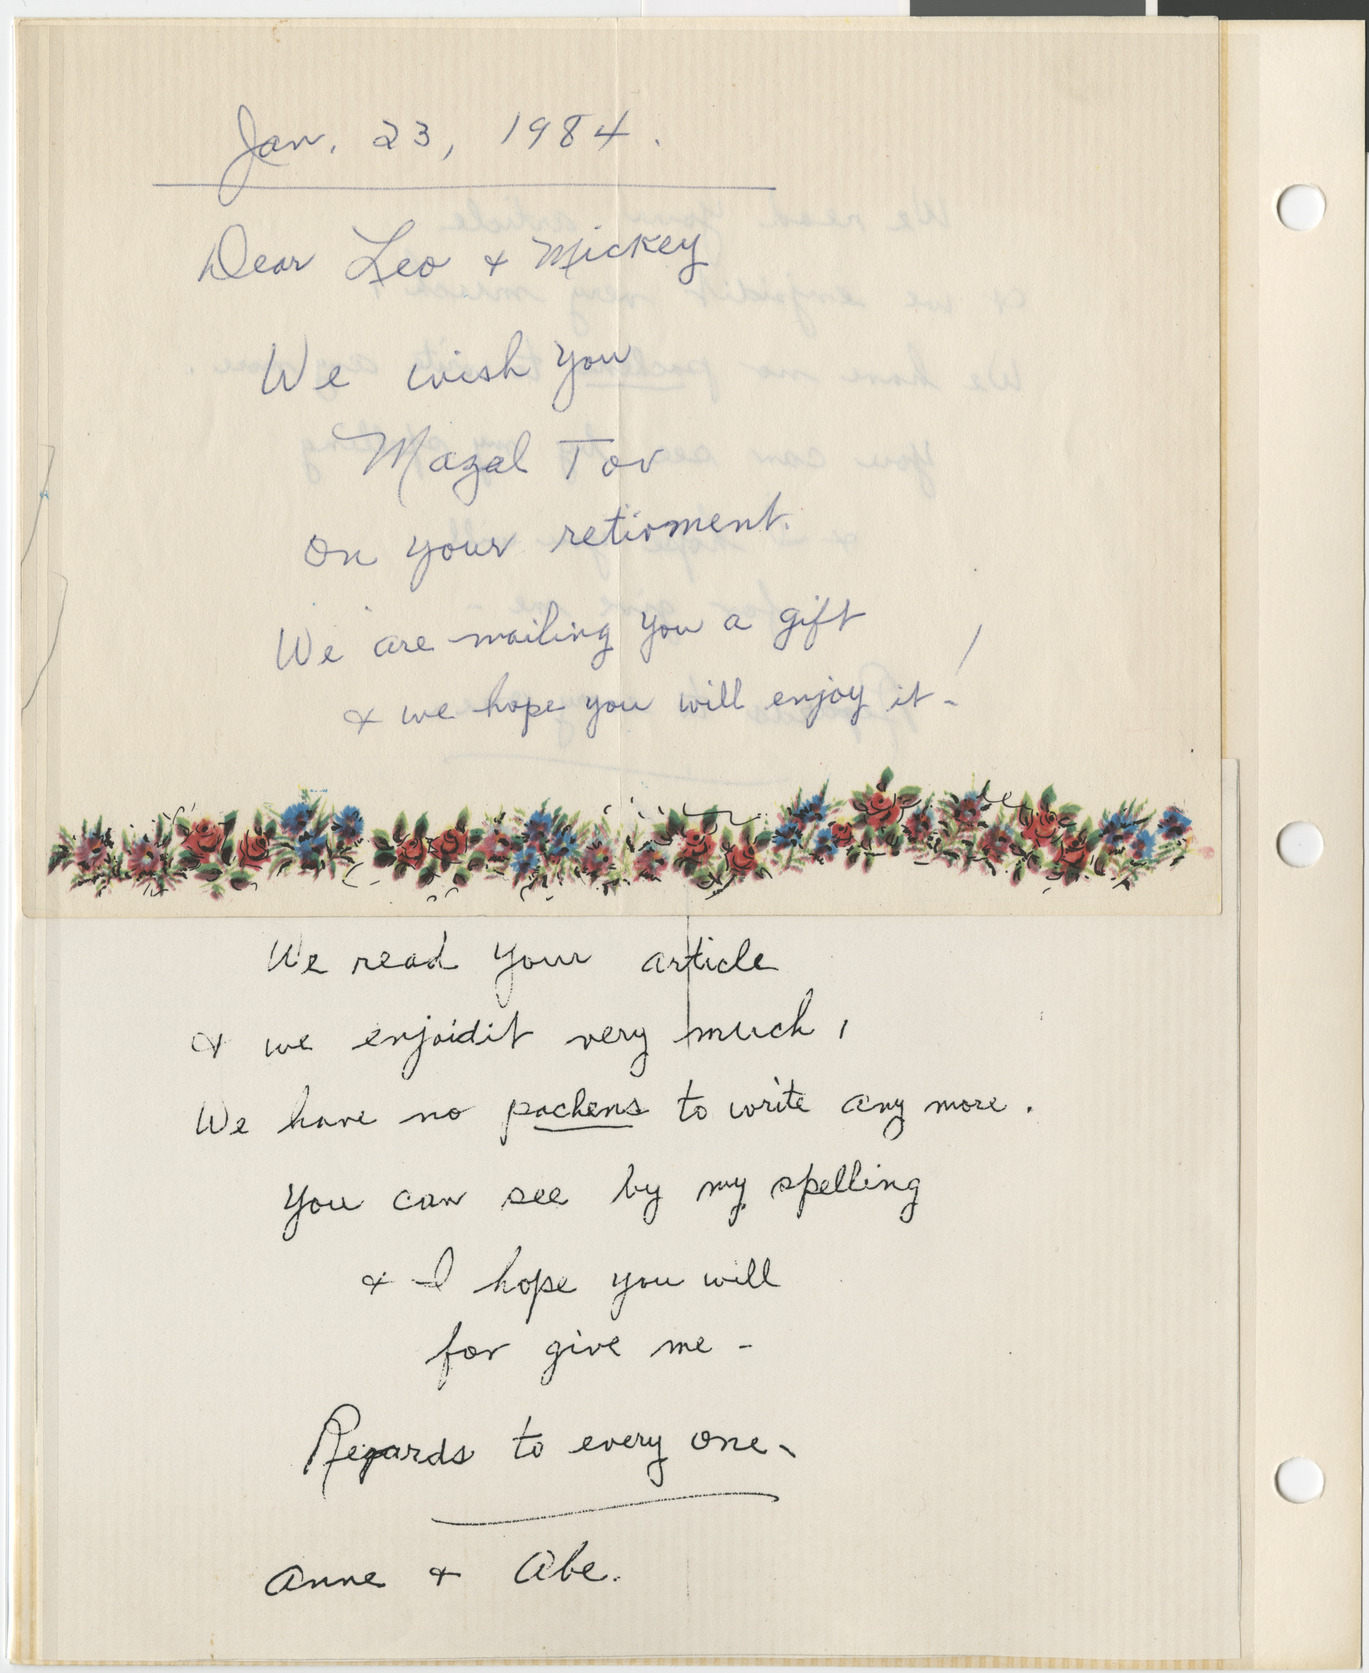 Jan. 23, 1984.
Dear Leo & Mickey
We wish you
Mazal Tov
on your retioment.
We are mailing you a gift
& we hope you will enjoy it - !
We read your article
& we enjoidit very much,
We have no pachens to write any more.
You can see by my spelling
& I hope you will
for give me -
Regards to every one -
Anne & Abe.